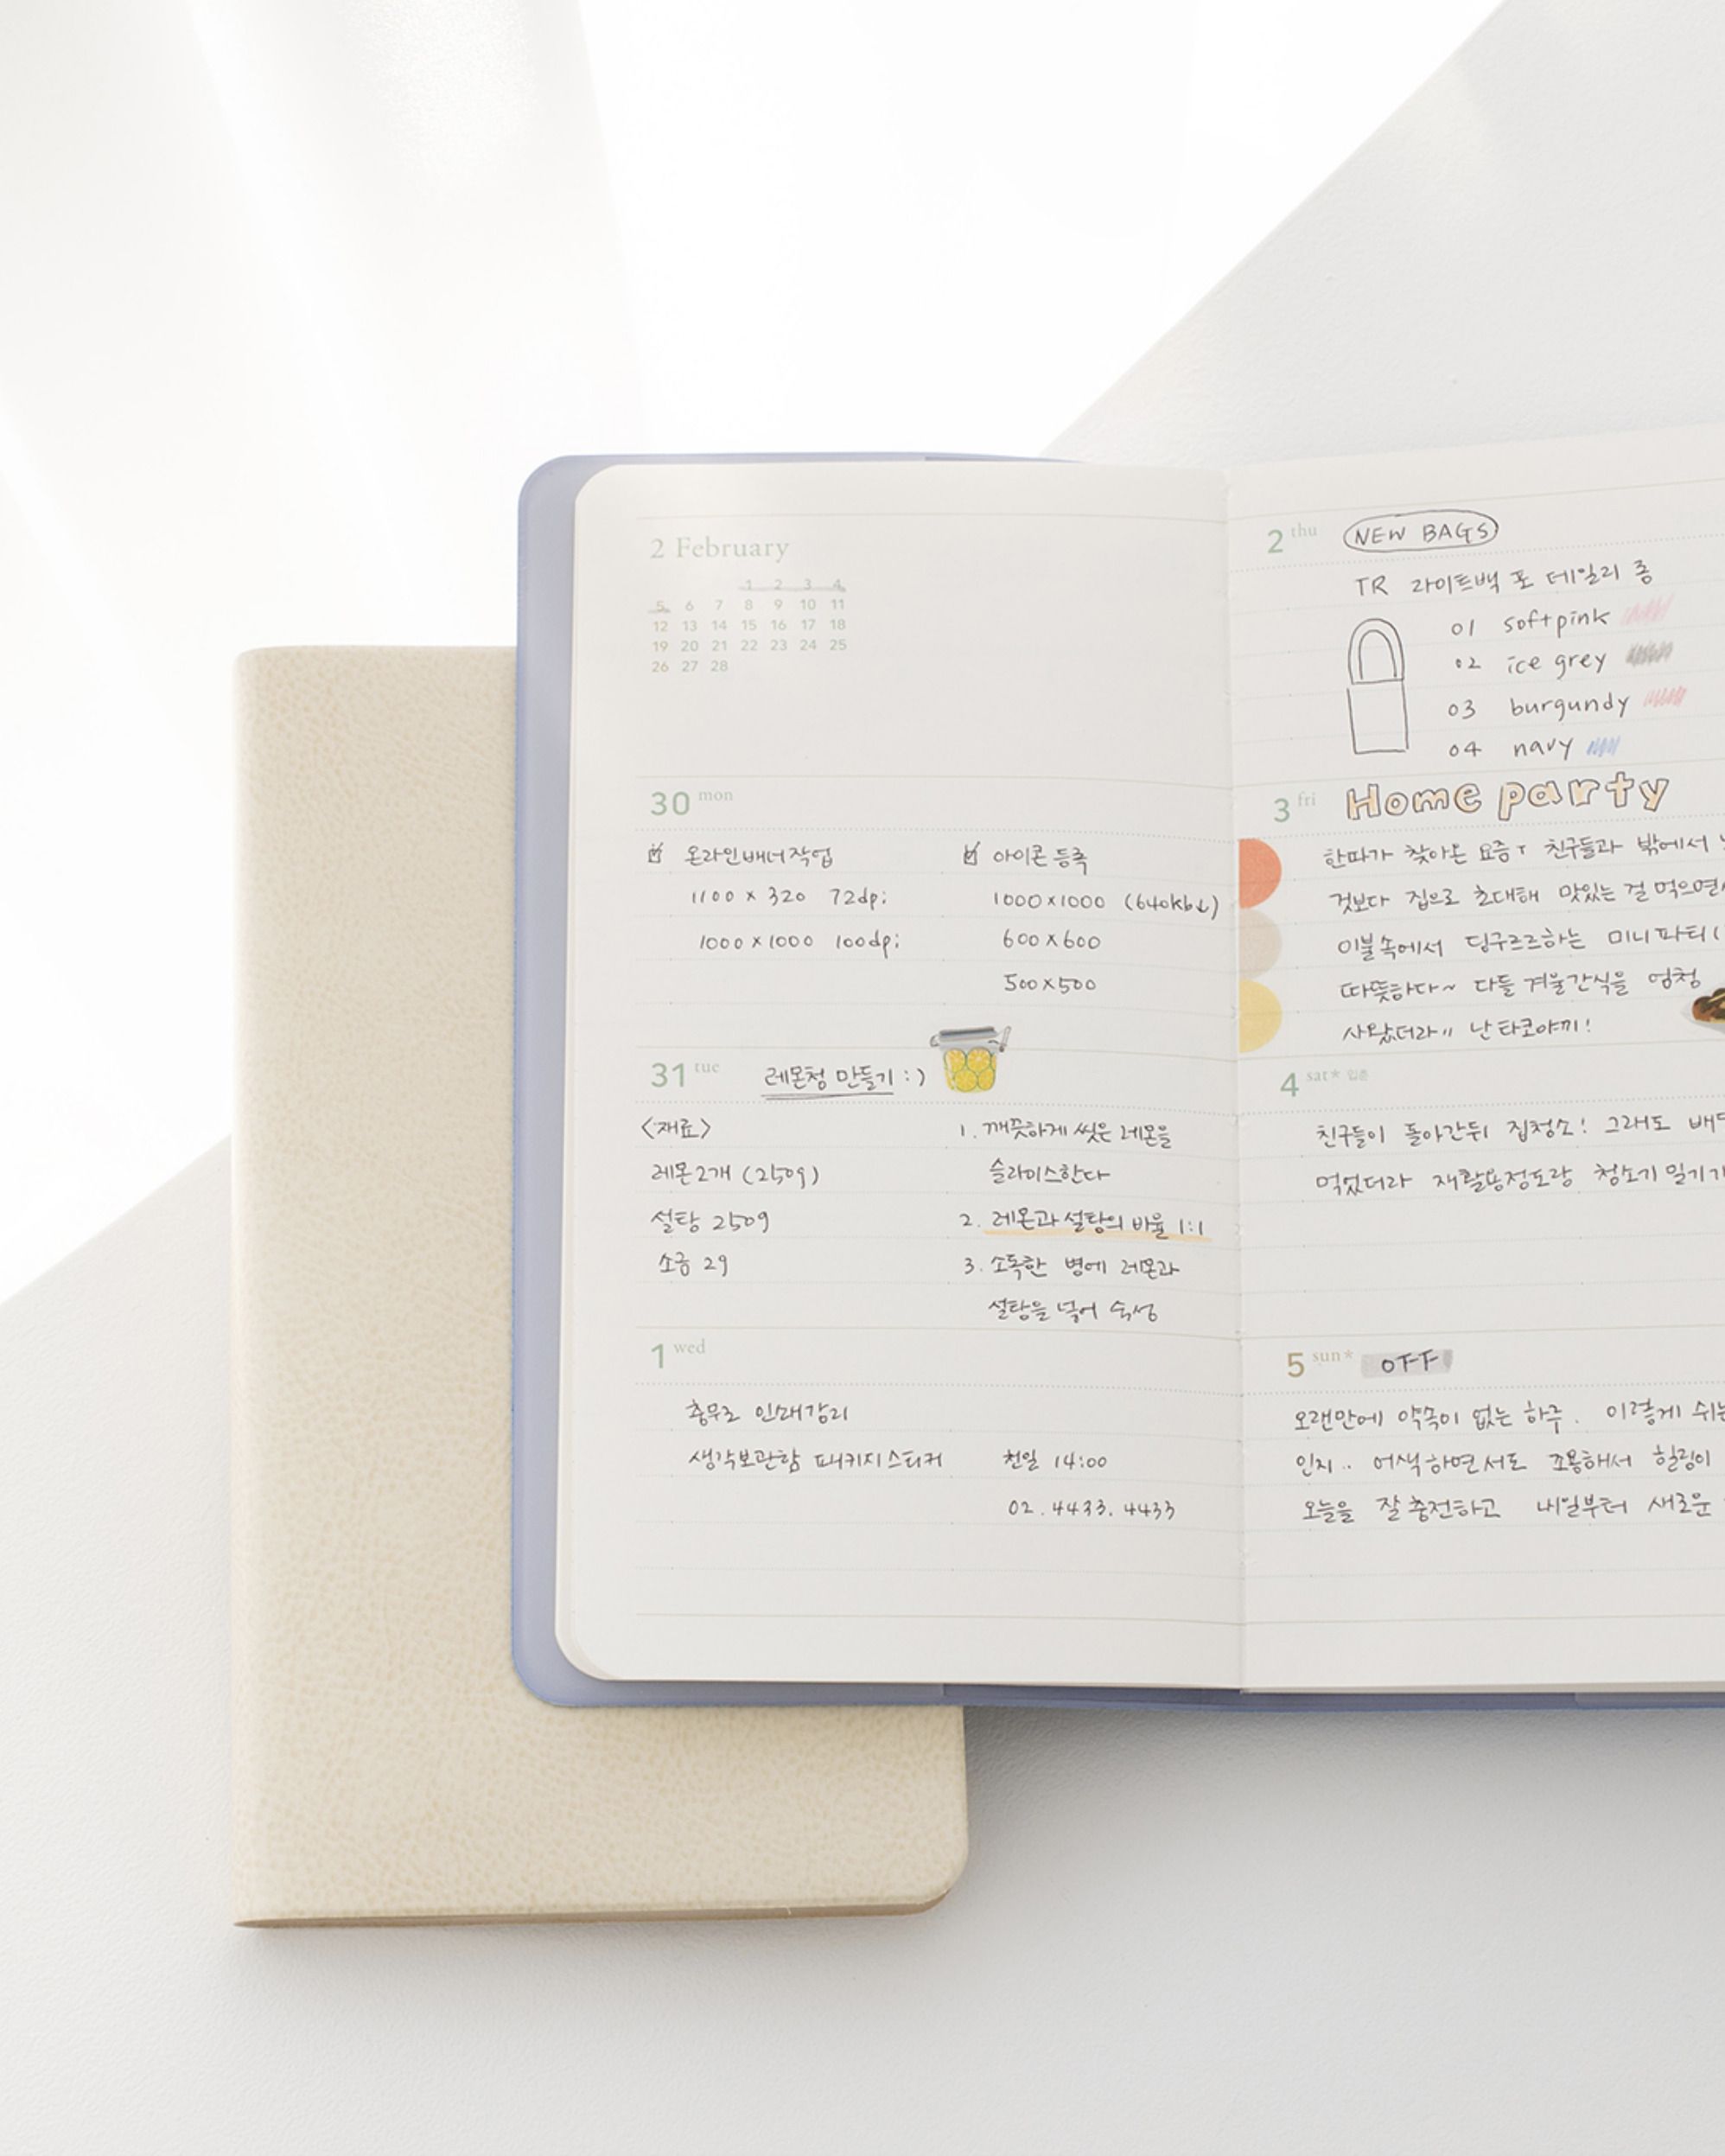 2 February
1 2 3 4
5 6 7 8 9 10 11
12 13 14 15 16 17 18
19 20 21 22 23 24 25
26 27 28
30 mon
온라인배너작업
1100 x 320 72dpi
1000 x 1000 100dpi
아이콘 등록
1000x1000 (640kb↓)
600x600
500x500
31 tue 레몬청 만들기 :)
<재료>
레몬 2개 (250g)
설탕 250g
소금 2g
1. 깨끗하게 씻은 레몬을
슬라이스한다
2. 레몬과 설탕의 비율 1:1
3. 소독한 병에 레몬과
설탕을 넣어 숙성
1 wed
충무로 인쇄감리
생각보관함 패키지스티커
천일 14:00
02. 4433. 4433
2 thu NEW BAGS
TR 라이트백 포 데일리 종
01 softpink
02 ice grey
03 burgundy
04 navy
3 fri Home party
한파가 찾아온 요즘 친구들과 밖에서
것보다 집으로 초대해 맛있는 걸 먹으면서
이불속에서 딩구르르하는 미니파티(
따뜻하다~ 다들 겨울간식을 엄청
사왔더라 난 타코야끼!
4 sat* 입춘
친구들이 돌아간뒤 집청소! 그래도
먹었더라 재활용정도랑 청소기 밀기
5 sun* OFF
오랜만에 약속이 없는 하루. 이렇게
인지.. 어색하면서도 조용해서 힐링이
오늘을 잘 충전하고 내일부터 새로운